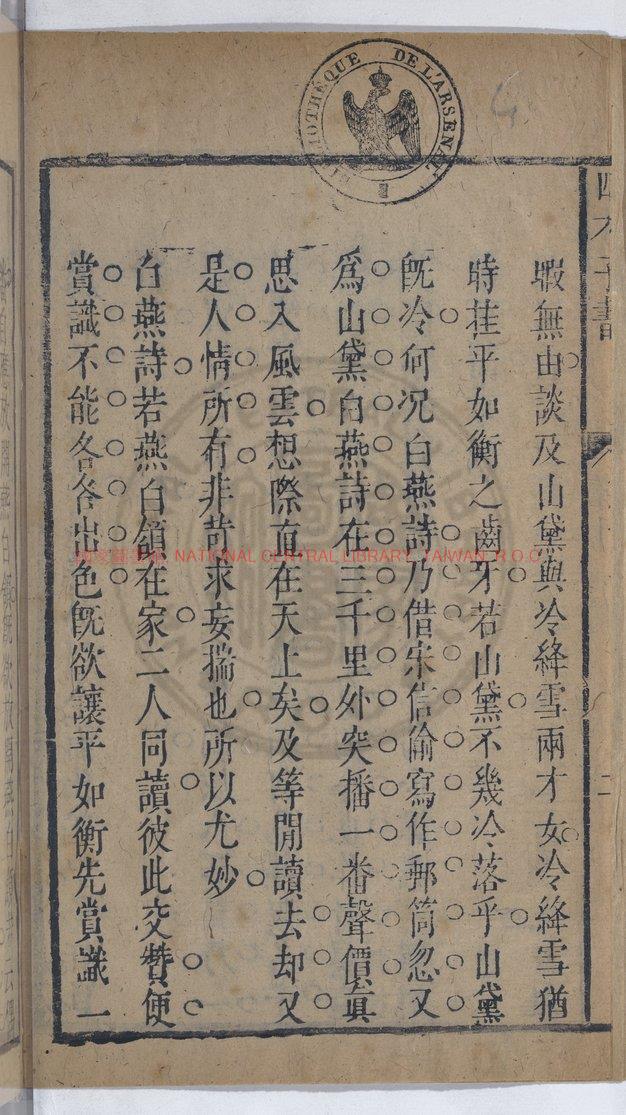 四才子書
二
暇無由談及山黛與冷絳雪兩才女冷絳雪猶
時挂平如衡之齒牙若山黛不幾冷落乎山黛
旣冷何况白燕詩乃借宋信偷寫作郵筒忽又
爲山黛白燕詩在三千里外突播一番聲價眞
思入風雲想際直在天上矣及等閒讀去却又
是人情所有非苛求妄揣也所以尤妙
白燕詩若燕白頷在家二人同讀彼此交贊便
賞識不能各各出色旣欲讓平如衡先賞識一
BIBLIOTHÈQUE DE L'ARSENAL
NATIONAL CENTRAL LIBRARY, TAIWAN, R.O.C